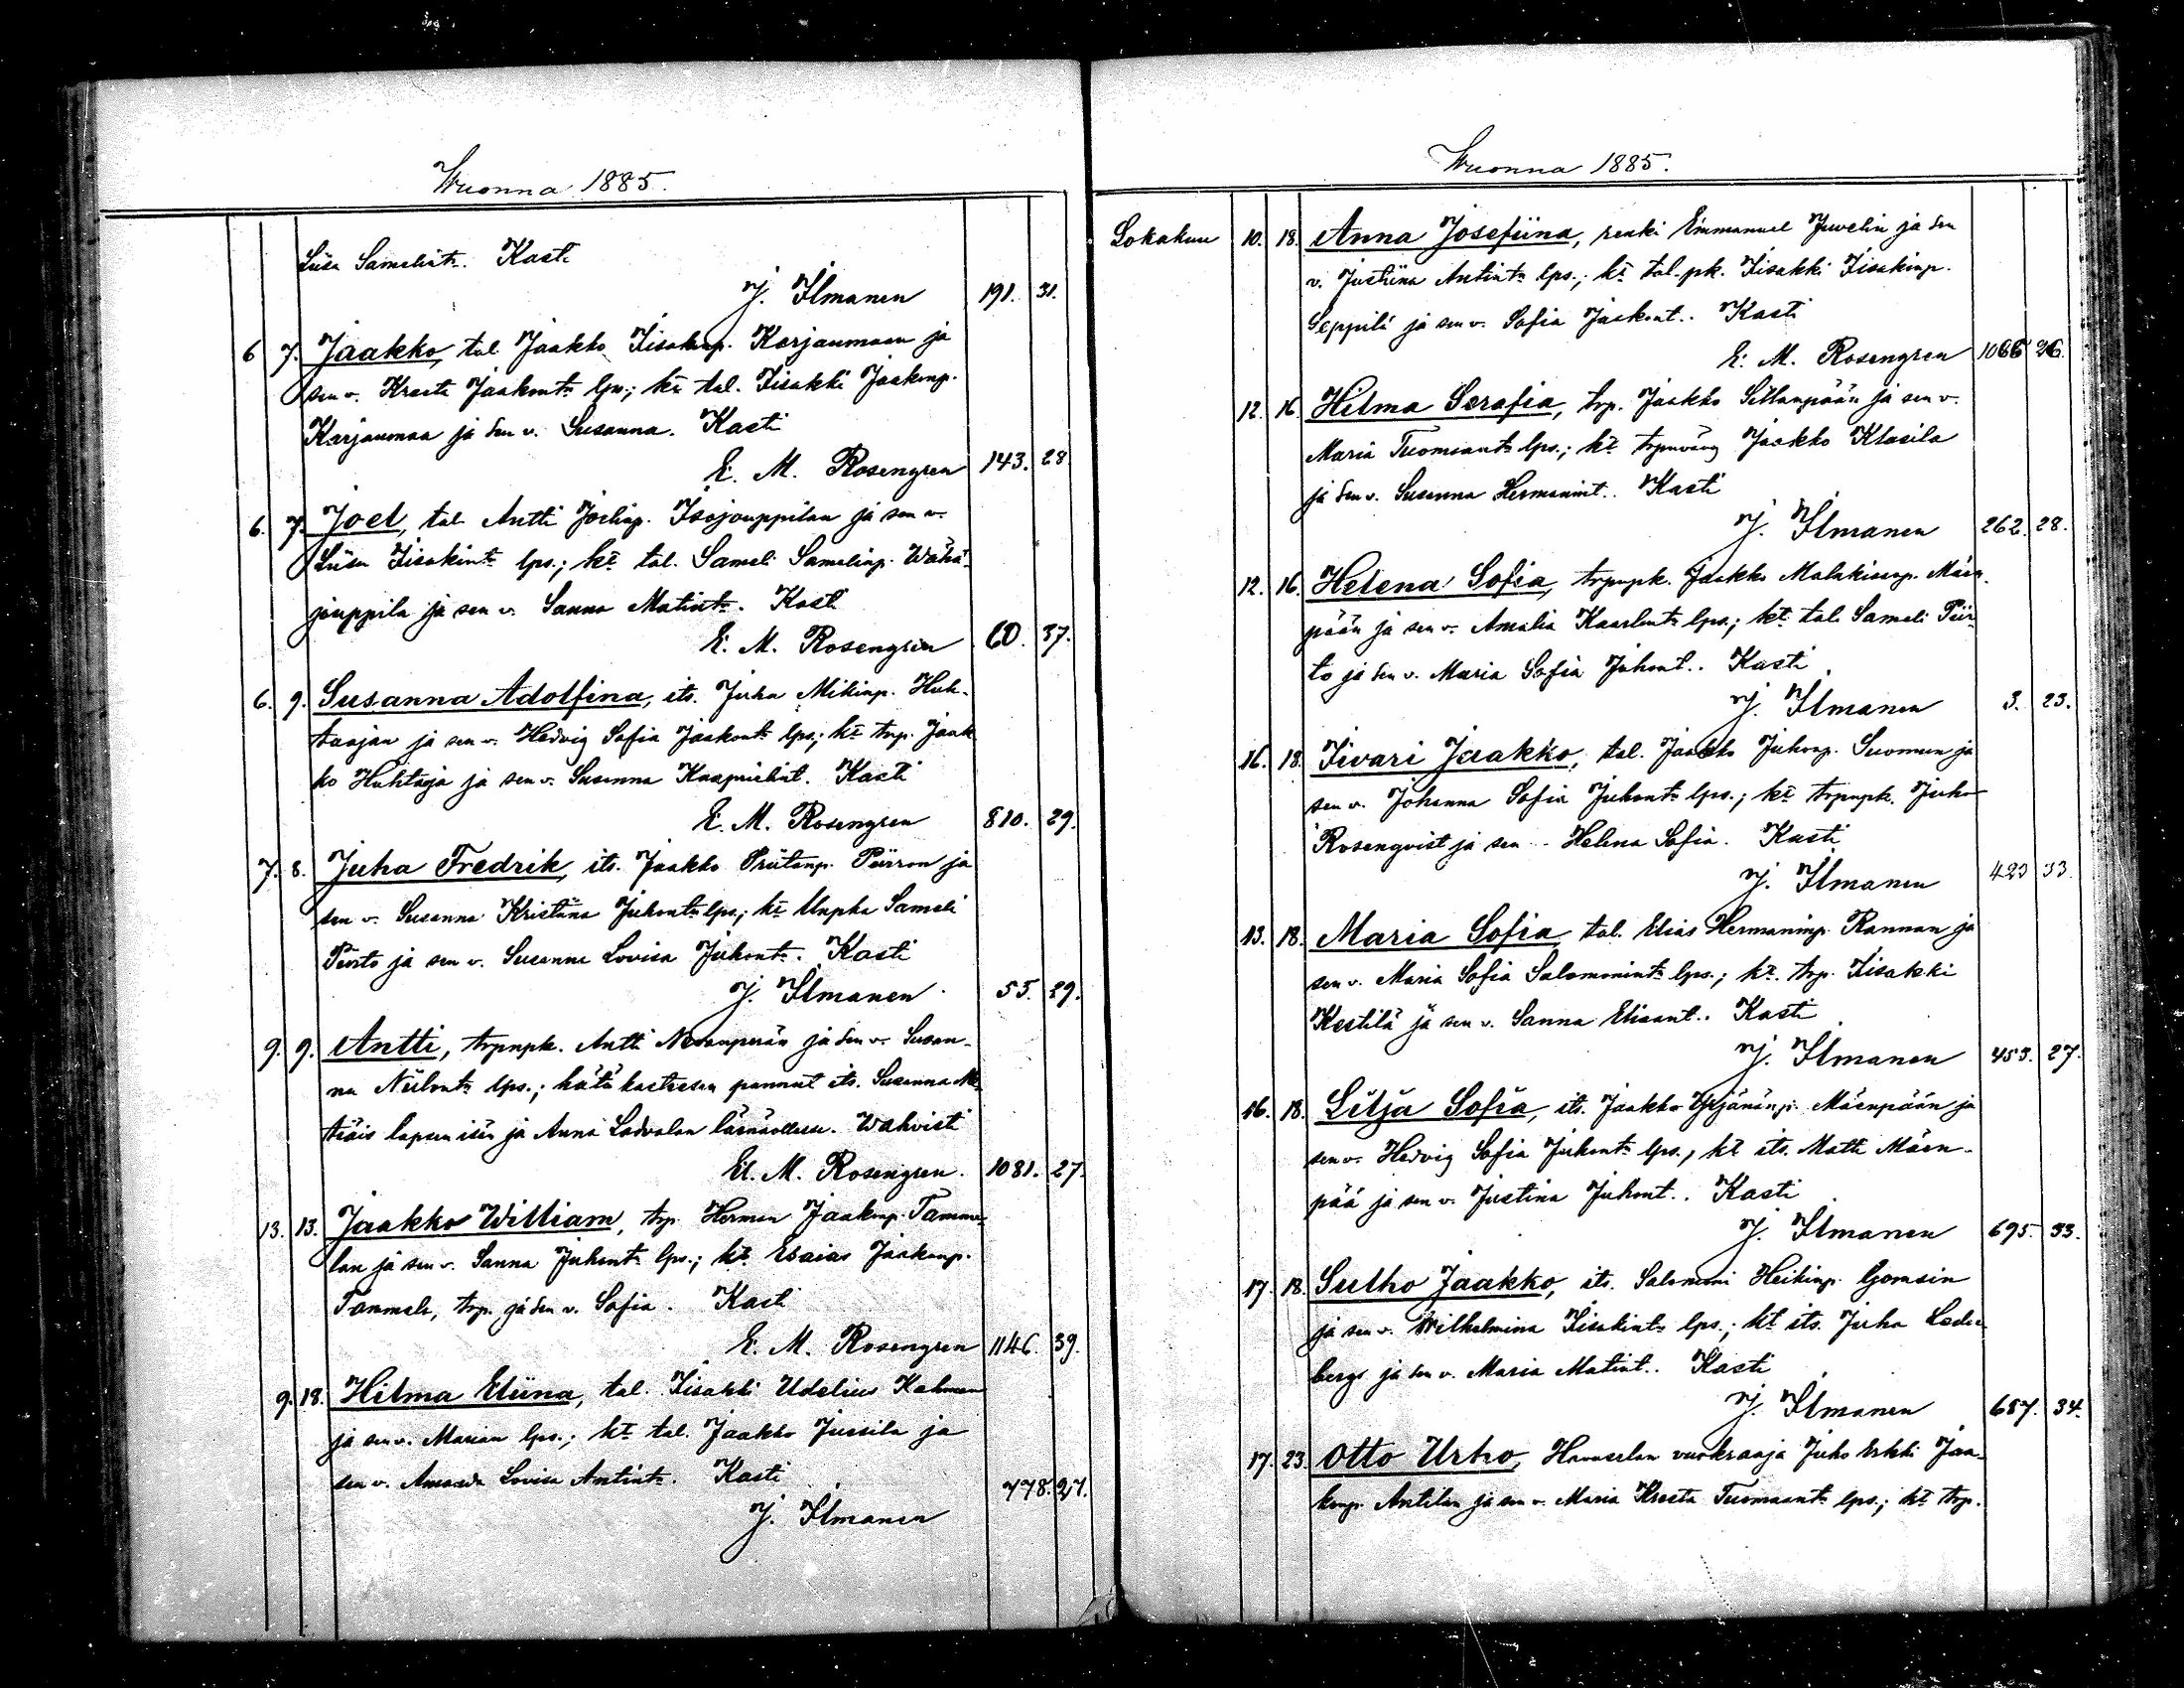 Wuonna 1885.
Liisa Samelint. Kasti
J. Ilmanen 191. 31.
6 7. Jaakko, tal. Jaakko Iisakinp. Karjanmaan ja
sen v. Kreeta Jaakont. lps.; kt tal. Iisakki Jaakonp.
Karjanmaa ja sen v. Susanna. Kasti
E. M. Rosengren 143. 28
6. 7. Joel, tal. Antti Joelinp. Isojouppilan ja sen v.
Liisa Iisakint. lps.; kt tal. Sameli Samelinp. Wähä-
jouppila ja sen v. Sanna Matint. Kasti
E. M. Rosengren 60. 37.
6. 9. Susanna Adolfina, its. Juha Mikinp. Huh-
taajan ja sen v. Hedvig Sofia Jaakont. lps.; kt trp. Jaak
ko Huhtaja ja sen v. Susanna Kaaprielint. Kasti
E. M. Rosengren 810. 29.
7. 8. Juha Fredrik, its. Jaakko Priitanp. Piirron ja
sen v. Susanna Kristiina Juhont. lps.; kt Sameli
Piirto ja sen v. Susanna Lovisa Juhont. Kasti
J. Ilmanen 55. 29.
9. 9. Antti, trpnpk. Antti ja sen v. Susan-
na Niilont. lps.; hätäkasteesen pannut its. Susanna
lapsen isän ja Anna Ladvalan läsnäollessa. Wahvisti
E. M. Rosengren. 1081. 27.
13. 13. Jaakko William, trp. Herman Jaakonp. Tamme-
lan ja sen v. Sanna Juhont. lps.; kt Esaias Jaakonp.
Tammela, trp. ja sen v. Sofia. Kasti
E. M. Rosengren 1146. 39.
9. 18. Hilma Eliina, tal. Iisakki Udelius
ja sen v. Marian lps.; kt tal. Jaakko Jussila ja
sen v. Amanda Lovisa Antint. Kasti
J. Ilmanen 778. 27.
Wuonna 1885.
Lokakuu 10. 18. Anna Josefiina, renki Emmanuel Juvelin ja sen
v. Justiina Antint. lps.; kt tal. pk. Iisakki Iisakinp.
Seppilä ja sen v. Sofia Jaakont.. Kasti
E. M. Rosengren 1066 26.
12. 16. Hilma Serafia, trp. Jaakko Sillanpään ja sen v.
Maria Tuomaant. lps.; kt trpnvävy Jaakko Klasila
ja sen v. Susanna Hermanint.. Kasti
J. Ilmanen 262. 28.
12. 16. Helena Sofia, trpnpk. Jaakko Malakiaanp. Mäen-
pään ja sen v. Amalia Kaarlent. lps.; kt tal. Sameli Piir-
to ja sen v. Maria Sofia Juhont.. Kasti
J. Ilmanen 3. 23.
16. 18. Iivari Jaakko, tal. Jaakko Juhonp. Suomen ja
sen v. Johanna Sofia Juhont. lps.; kt trpnpk. Juho
Rosenqvist ja sen .. Helena Sofia. Kasti
J. Ilmanen 423 33.
13. 18. Maria Sofia, tal. Elias Hermaninp. Rannan ja
sen v. Maria Sofia Salomonint. lps.; kt. trp. Iisakki
Kestilä ja sen v. Sanna Eliaant.. Kasti
J. Ilmanen 453. 27.
16. 18. Lilja Sofia, its. Jaakko Yrjänänp. Mäenpään ja
sen v. Hedvig Sofia Juhont. lps.; kt its. Matti Mäen-
pää ja sen v. Justina Juhont.. Kasti
J. Ilmanen 695. 33.
17. 18. Sulho Jaakko, its. Salomoni Heikinp.
ja sen v. Wilhelmina Iisakint. lps.; kt its. Juha Leder-
bergs ja sen v. Maria Matint.. Kasti
J. Ilmanen 687. 34.
17. 23. Otto Urho, Hannselan vuokraaja Juho Erkki Jaa-
konp. Antilan ja sen v. Maria Kreeta Tuomaant. lps.; kt trp.